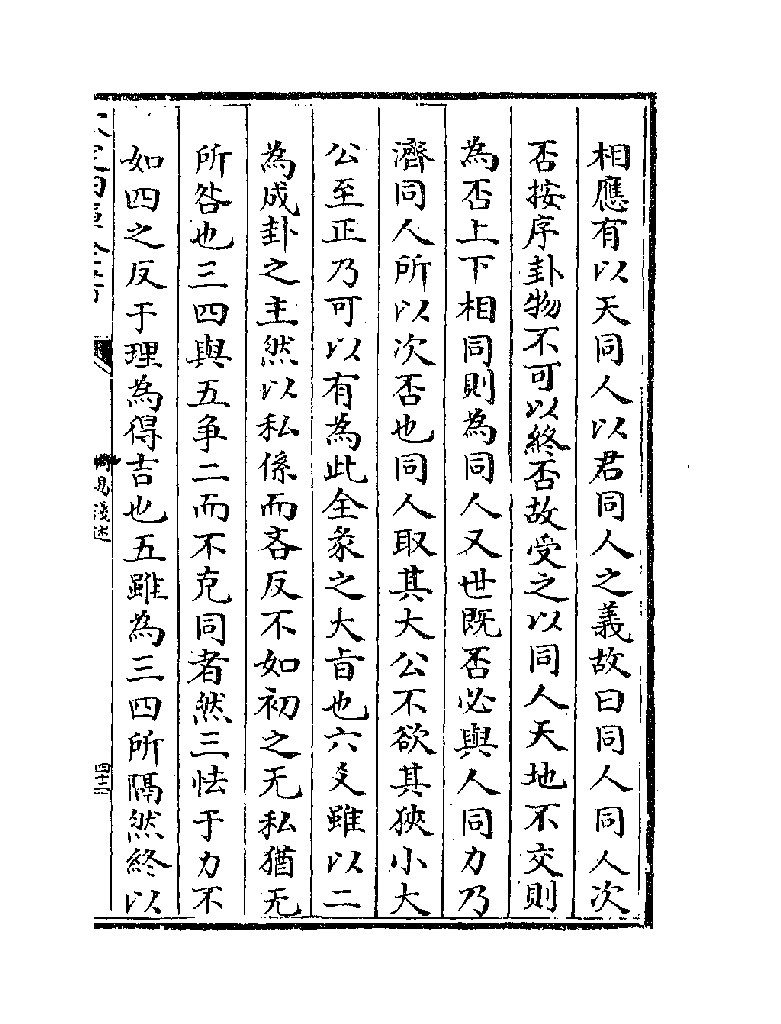 相應有以天同人以君同人之義故曰同人同人次
否按序卦物不可以終否故受之以同人天地不交則
為否上下相同則為同人又世既否必與人同力乃
濟同人所以次否也同人取其大公不欲其狹小大
公至正乃可以有為此全彖之大旨也六爻雖以二
為成卦之主然以私係而吝反不如初之无私猶无
所咎也三四與五争二而不克同者然三怯于力不
如四之反于理為得吉也五雖為三四所隔然終以
易淺述
四十二